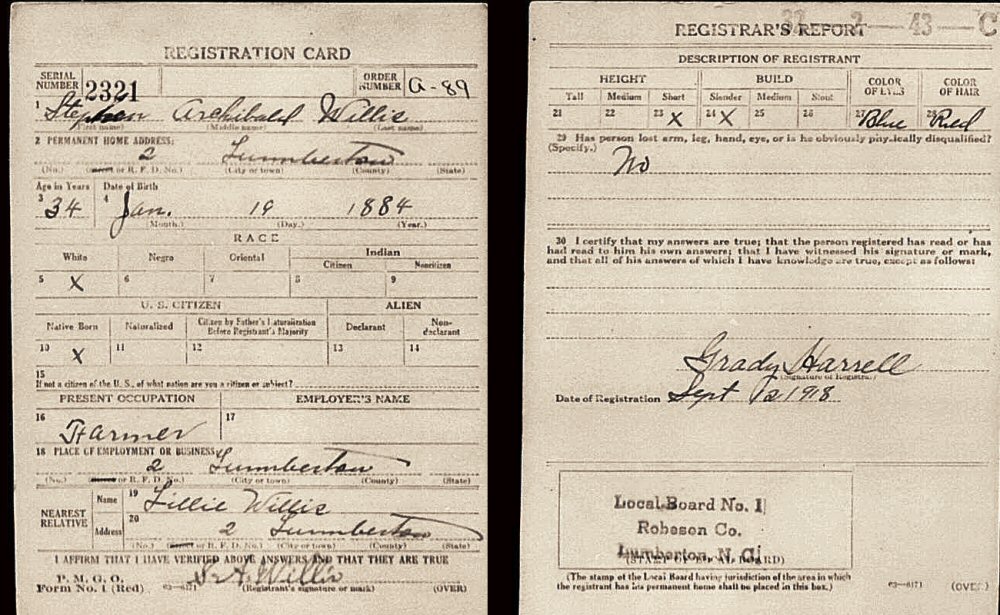 REGISTRATION CARD
SERIAL NUMBER 2321 ORDER NUMBER A-89
1 Stephen Archibald Willis
(First name) (Middle name) (Last name)
2 PERMANENT HOME ADDRESS:
2 Lumberton
(No.) (or R. F. D. No.) (City or town) (County) (State)
Age in Years Date of Birth
3 34 4 Jan. 19 1884
(Month.) (Day.) (Year.)
RACE
White Negro Oriental Indian
Citizen Noncitizen
5 X 6 7 8 9
U. S. CITIZEN ALIEN
Native Born Naturalized Citizen by Father's Naturalization Before Registrant's Majority Declarant Non-declarant
10 X 11 12 13 14
15
If not a citizen of the U. S., of what nation are you a citizen or subject?
PRESENT OCCUPATION EMPLOYER'S NAME
16 Farmer 17
18 PLACE OF EMPLOYMENT OR BUSINESS:
2 Lumberton
(No.) (or R. F. D. No.) (City or town) (County) (State)
NEAREST RELATIVE Name 19 Lillie Willis
Address 20 2 Lumberton
(No.) (or R. F. D. No.) (City or town) (County) (State)
I AFFIRM THAT I HAVE VERIFIED ABOVE ANSWERS AND THAT THEY ARE TRUE
P. M. G. O.
Form No. 1 (Red) 03—6171 S. A. Willis (Registrant's signature or mark) (OVER)
32—2—43—C
REGISTRAR'S REPORT
DESCRIPTION OF REGISTRANT
HEIGHT BUILD COLOR OF EYES COLOR OF HAIR
Tall Medium Short Slender Medium Stout
21 22 23 X 24 X 25 26 27 Blue 28 Red
29 Has person lost arm, leg, hand, eye, or is he obviously physically disqualified?
(Specify.) No
30 I certify that my answers are true; that the person registered has read or has
had read to him his own answers; that I have witnessed his signature or mark,
and that all of his answers of which I have knowledge are true, except as follows:
Grady Harrell
(Signature of Registrar)
Date of Registration Sept 12 1918
Local Board No. 1
Robeson Co.
Lumberton, N. C.
(STAMP OF LOCAL BOARD)
(The stamp of the Local Board having jurisdiction of the area in which
the registrant has his permanent home shall be placed in this box.) 03—6171 (OVER)